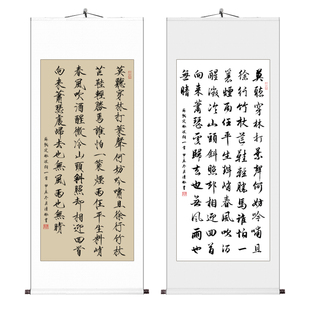 莫聽穿林打葉聲何妨吟嘯且
徐行竹杖芒鞋輕勝馬誰怕一
蓑煙雨任平生料峭春風吹酒
醒微冷山頭斜照却相迎回首
向來蕭瑟處歸去也無風雨也
無晴
莫聽穿林打葉聲何妨吟嘯且徐行竹杖
芒鞋輕勝馬誰怕一蓑煙雨任平生料峭
春風吹酒醒微冷山頭斜照却相迎回首
向來蕭瑟處歸去也無風雨也無晴